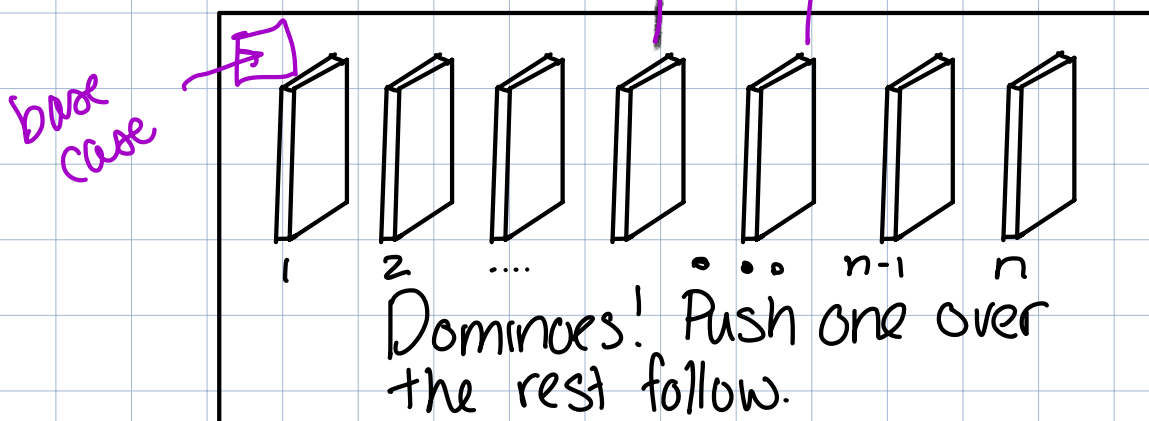 base
case
1 2 .... ... n-1 n
Dominoes! Push one over
the rest follow.